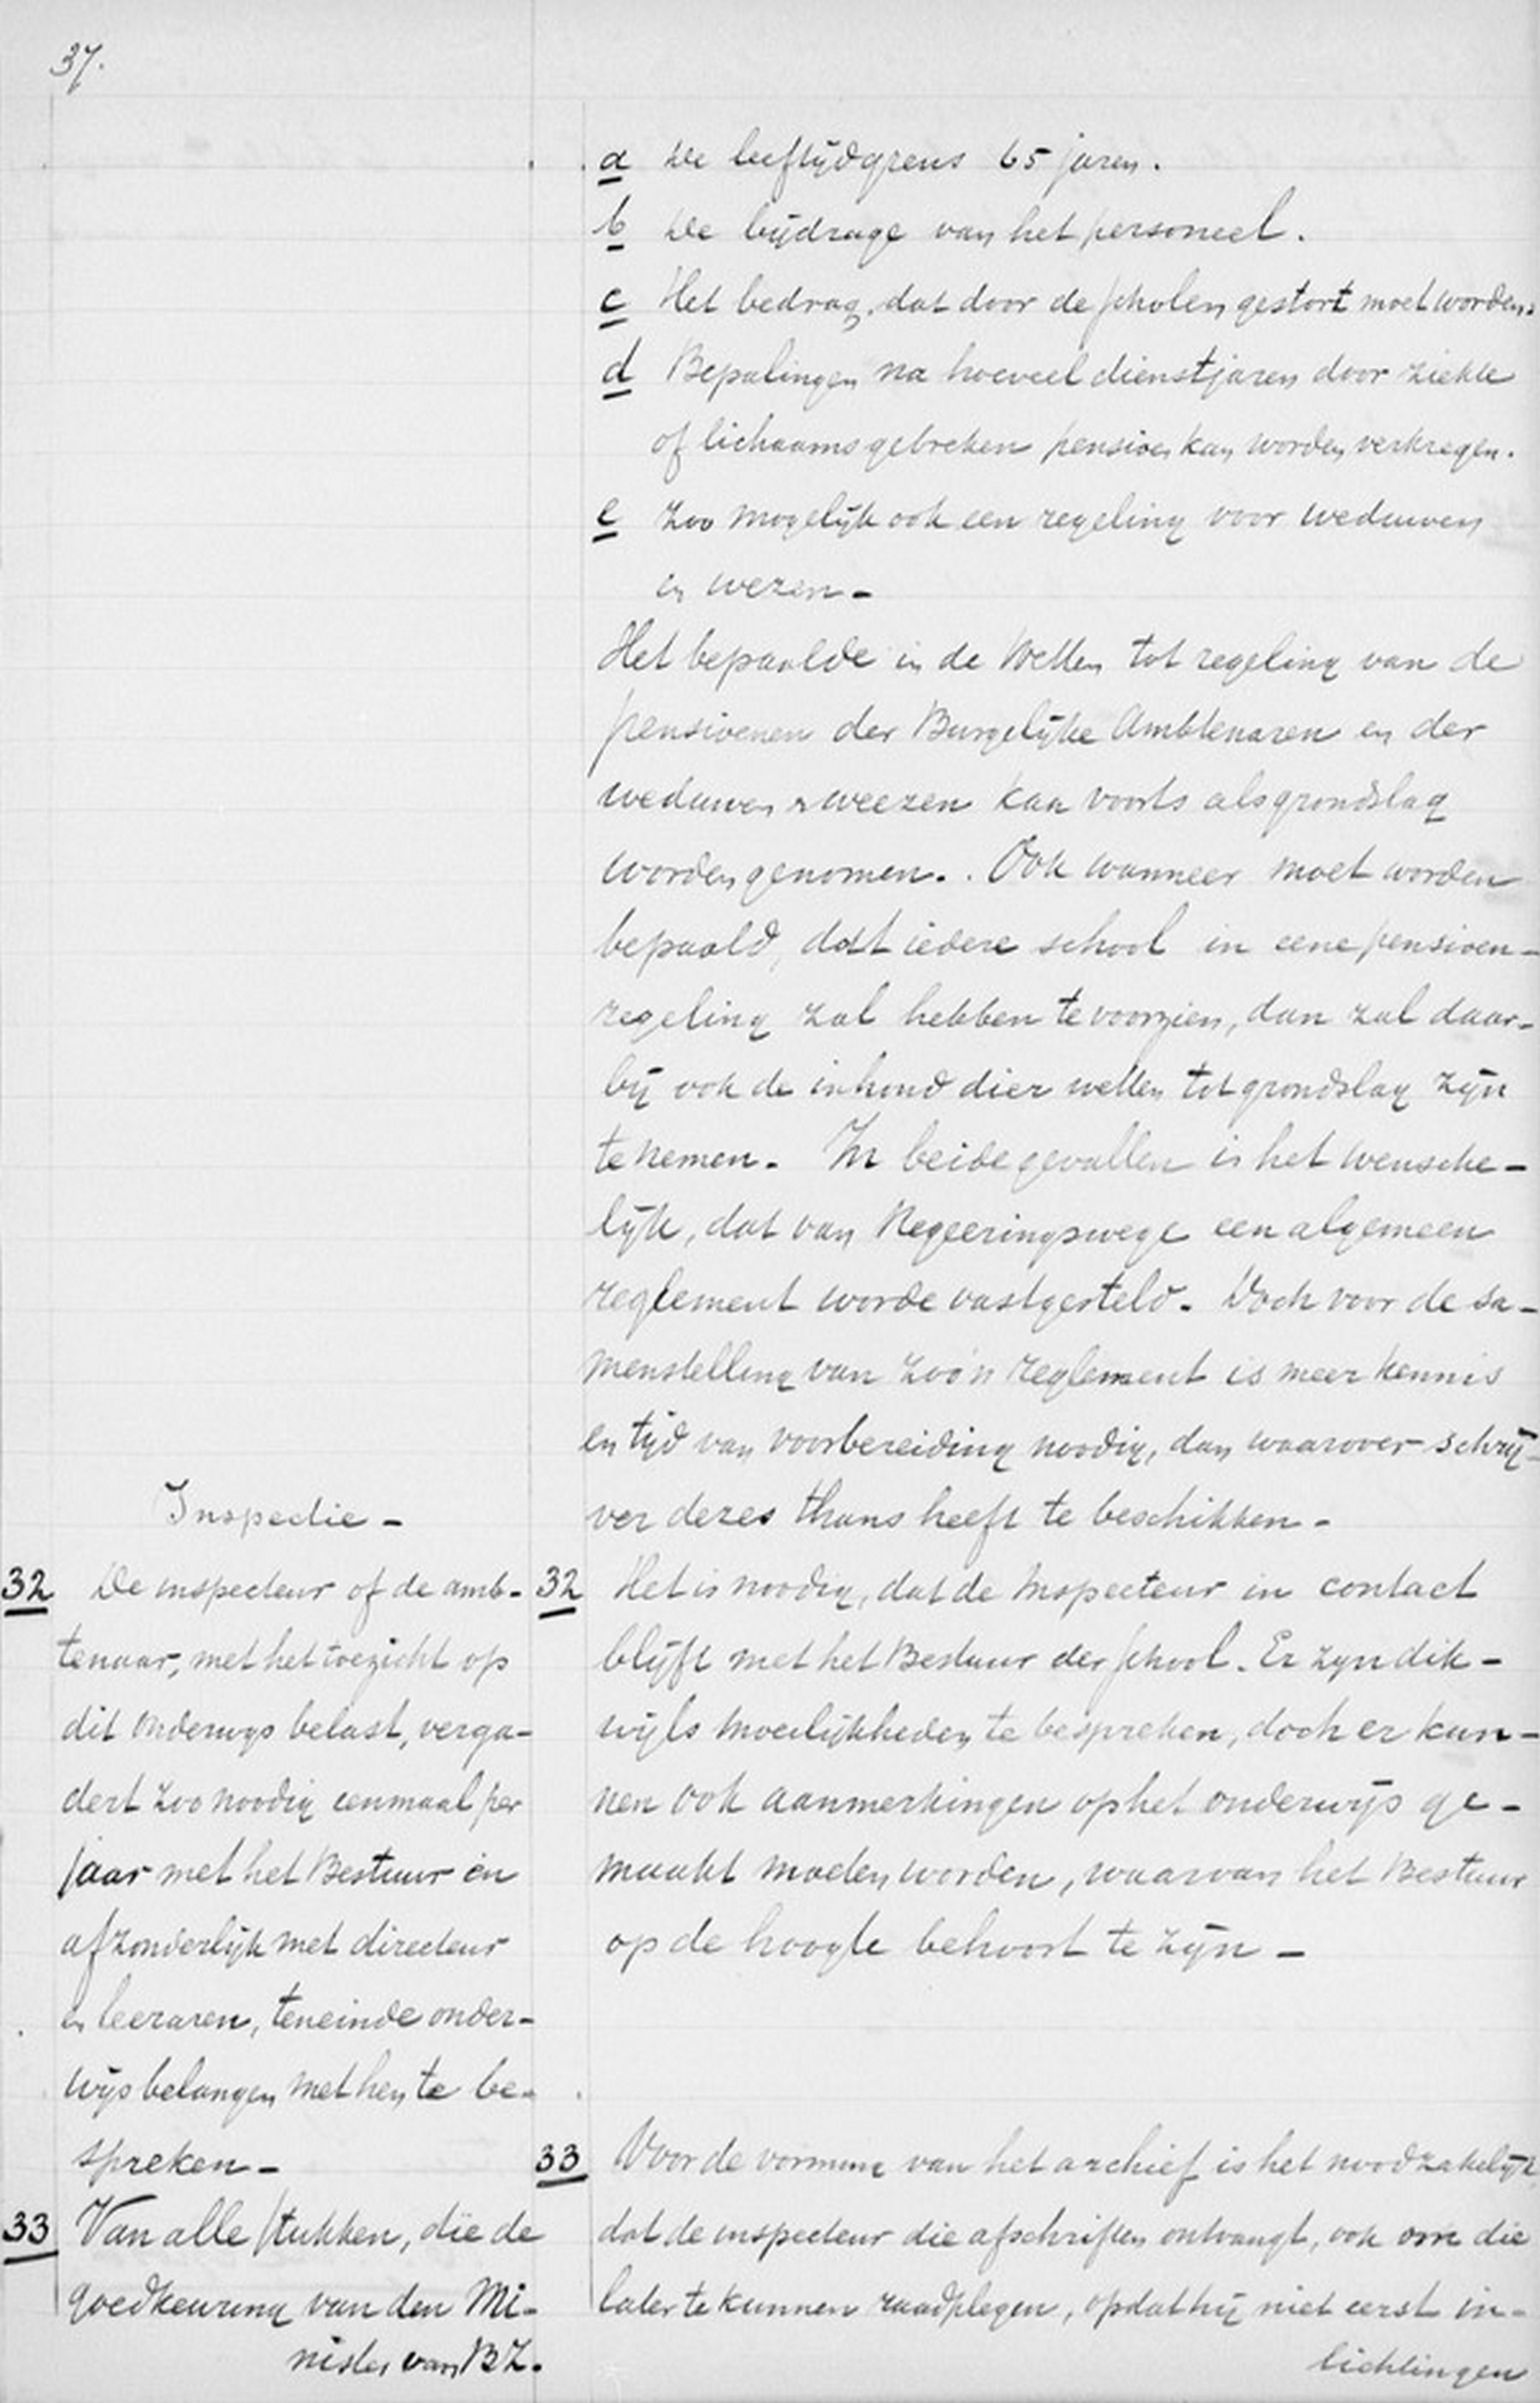 37.
a De leeftijdgrens 65 jaren.
b De bijdrage van het personeel.
c Het bedrag, dat door de scholen gestort moet worden.
d Bepalingen na hoeveel dienstjaren door ziekte
of lichaamsgebreken pensioen kan worden verkregen.
e Zoo mogelijk ook een regeling voor weduwen
en wezen -
Het bepaalde in de Wetten tot regeling van de
pensioenen der Burgelijke Ambtenaren en der
weduwen en weezen kan voorts als grondslag
worden genomen. Ook wanneer moet worden
bepaald, dat iedere school in eene pensioen-
regeling zal hebben te voorzien, dan zal daar-
bij ook de inhoud dier wetten tot grondslag zijn
te nemen. In beide gevallen is het wensche-
lijk, dat van Regeeringswege een algemeen
reglement worde vastgesteld. Doch voor de sa-
menstelling van zoo'n reglement is meer kennis
en tijd van voorbereiding noodig, dan waarover schrij-
ver dezes thans heeft te beschikken -
Inspectie -
32 De inspecteur of de amb-
tenaar, met het toezicht op
dit onderwijs belast, verga-
dert zoo noodig eenmaal per
jaar met het Bestuur en
afzonderlijk met directeur
en leeraren, teneinde onder-
wijsbelangen met hen te be-
spreken -
33 Van alle stukken, die de
goedkeuring van den Mi-
nister van BZ.
32 Het is noodig, dat de Inspecteur in contact
blijft met het Bestuur der school. Er zijn dik-
wijls moeilijkheden te bespreken, doch er kun-
nen ook aanmerkingen op het onderwijs ge-
maakt moeten worden, waarvan het Bestuur
op de hoogte behoort te zijn -
33 Voor de vorming van het archief is het noodzakelijk
dat de inspecteur die afschriften ontvangt, ook om die
later te kunnen raadplegen, opdat hij niet eerst in-
lichtingen